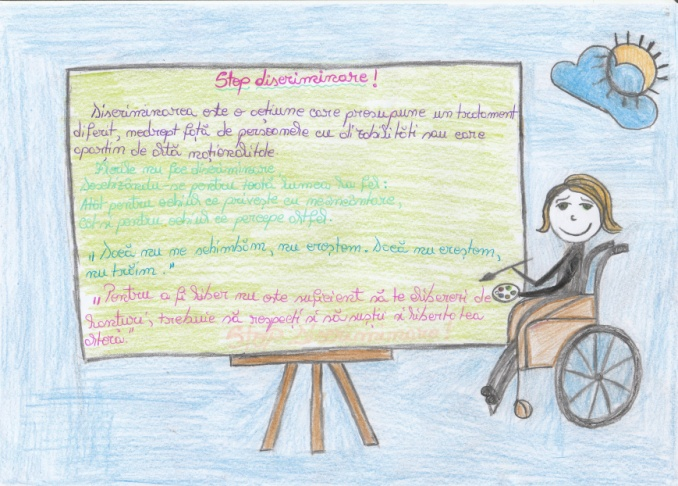 Stop discriminare!
Discriminarea este o acțiune care presupune un tratament
diferit, nedrept față de persoanele cu dizabilități sau care
aparțin de altă naționalitate.
Florile nu fac discriminare
pentru toată lumea la fel:
Atât pentru ochiul ce privește cu
Cât și pentru ochiul ce percepe altfel.
„Dacă nu ne schimbăm, nu creștem. Dacă nu creștem,
nu trăim."
„Pentru a fi liber nu este suficient să te eliberezi de
lanțuri, trebuie să respecți și să susții și libertatea
altora."